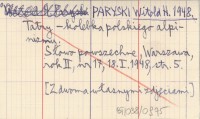 PARYSKI Witold H. 1948.
Tatry - kolebka polskiego alpi-
nizmu.
Słowo powszechne, Warszawa,
rok II, nr. 17, 18.I.1948, str. 5.
[Z dwoma własnymi zdjęciami]